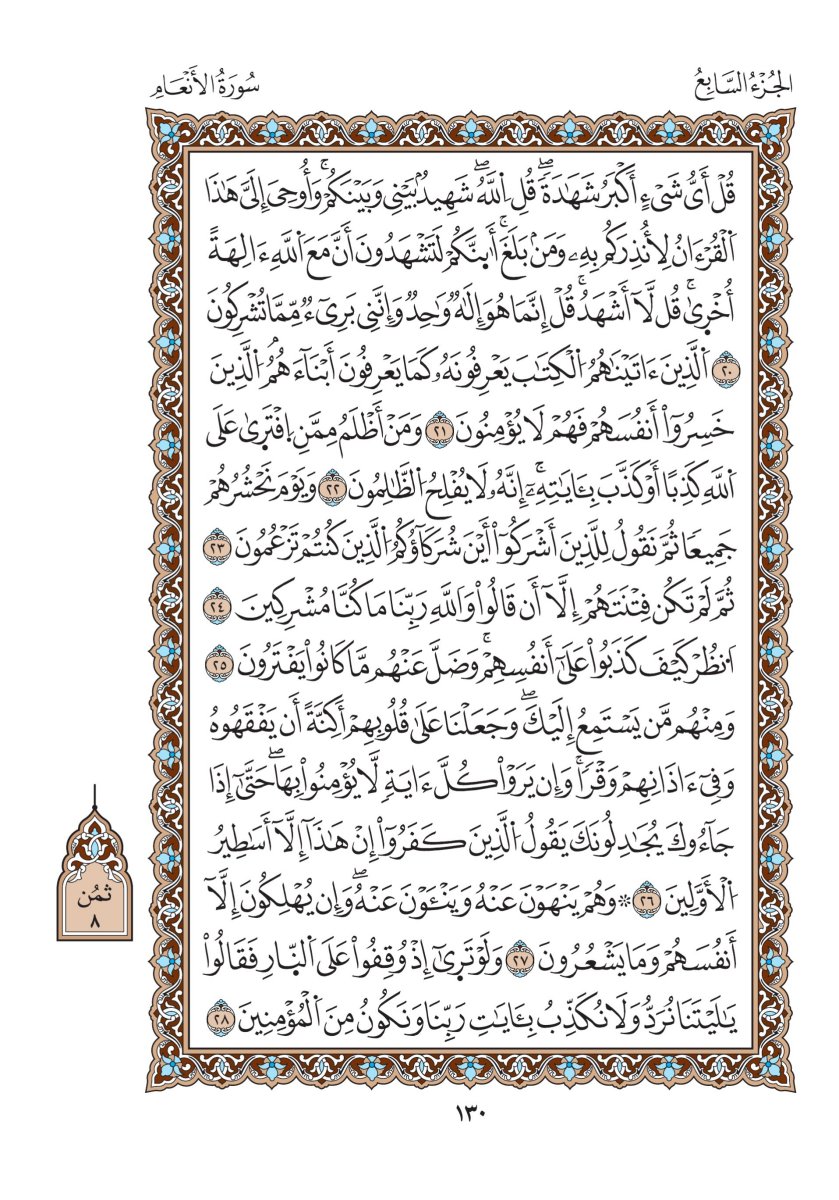 الجُزْءُ السَّابِعُ
سُورَةُ الأَنْعَامِ
قُلْ أَيُّ شَيْءٍ أَكْبَرُ شَهَٰدَةٗۖ قُلِ اِ۬للَّهُۖ شَهِيدُۢ بَيْنِي وَبَيْنَكُمْۚ وَأُوحِيَ إِلَيَّ هَٰذَا
اَ۬لْقُرْءَانُ لِأُنذِرَكُم بِهِۦ وَمَنۢ بَلَغَۚ أَئِنَّكُمْ لَتَشْهَدُونَ أَنَّ مَعَ اَ۬للَّهِ ءَالِهَةً
أُخْرۭيٰۚ قُل لَّآ أَشْهَدُۚ قُلْ إِنَّمَا هُوَ إِلَٰهٞ وَٰحِدٞ وَإِنَّنِي بَرِيٓءٞ مِّمَّا تُشْرِكُونَ
٢٠ اَ۬لَّذِينَ ءَاتَيْنَٰهُمُ اُ۬لْكِتَٰبَ يَعْرِفُونَهُۥ كَمَا يَعْرِفُونَ أَبْنَآءَهُمُ اُ۬لَّذِينَ
خَسِرُوٓاْ أَنفُسَهُمْ فَهُمْ لَا يُؤْمِنُونَ ٢١ وَمَنْ أَظْلَمُ مِمَّنِ اِ۪فْتَرۭيٰ عَلَى
اَ۬للَّهِ كَذِبًا أَوْ كَذَّبَ بِـَٔايَٰتِهِۦٓۚ إِنَّهُۥ لَا يُفْلِحُ اُ۬لظَّٰلِمُونَ ٢٢ وَيَوْمَ نَحْشُرُهُمْ
جَمِيعٗا ثُمَّ نَقُولُ لِلَّذِينَ أَشْرَكُوٓاْ أَيْنَ شُرَكَآؤُكُمُ اُ۬لَّذِينَ كُنتُمْ تَزْعُمُونَ ٢٣
ثُمَّ لَمْ تَكُن فِتْنَتَهُمْ إِلَّآ أَن قَالُواْ وَاَللَّهِ رَبِّنَا مَا كُنَّا مُشْرِكِينَ ٢٤
اَ۟نظُرْ كَيْفَ كَذَبُواْ عَلَىٰٓ أَنفُسِهِمْۚ وَضَلَّ عَنْهُم مَّا كَانُواْ يَفْتَرُونَ ٢٥
وَمِنْهُم مَّن يَسْتَمِعُ إِلَيْكَۖ وَجَعَلْنَا عَلَىٰ قُلُوبِهِمْ أَكِنَّةً أَن يَفْقَهُوهُ
وَفِيٓ ءَاذَانِهِمْ وَقْرٗاۚ وَإِن يَرَوْاْ كُلَّ ءَايَةٖ لَّا يُؤْمِنُواْ بِهَاۖ حَتَّىٰٓ إِذَا
جَآءُوكَ يُجَٰدِلُونَكَ يَقُولُ اُ۬لَّذِينَ كَفَرُوٓاْ إِنْ هَٰذَآ إِلَّآ أَسَٰطِيرُ
اُ۬لْأَوَّلِينَ ٢٦ ۞ وَهُمْ يَنْهَوْنَ عَنْهُ وَيَنْـَٔوْنَ عَنْهُۖ وَإِن يُهْلِكُونَ إِلَّآ
أَنفُسَهُمْ وَمَا يَشْعُرُونَ ٢٧ وَلَوْ تَرۭيٰٓ إِذْ وُقِفُواْ عَلَى اَ۬لنّ۪ارِ فَقَالُواْ
يَٰلَيْتَنَا نُرَدُّ وَلَا نُكَذِّبُ بِـَٔايَٰتِ رَبِّنَا وَنَكُونُ مِنَ اَ۬لْمُؤْمِنِينَ ٢٨
ثُمُن
٨
١٣٠